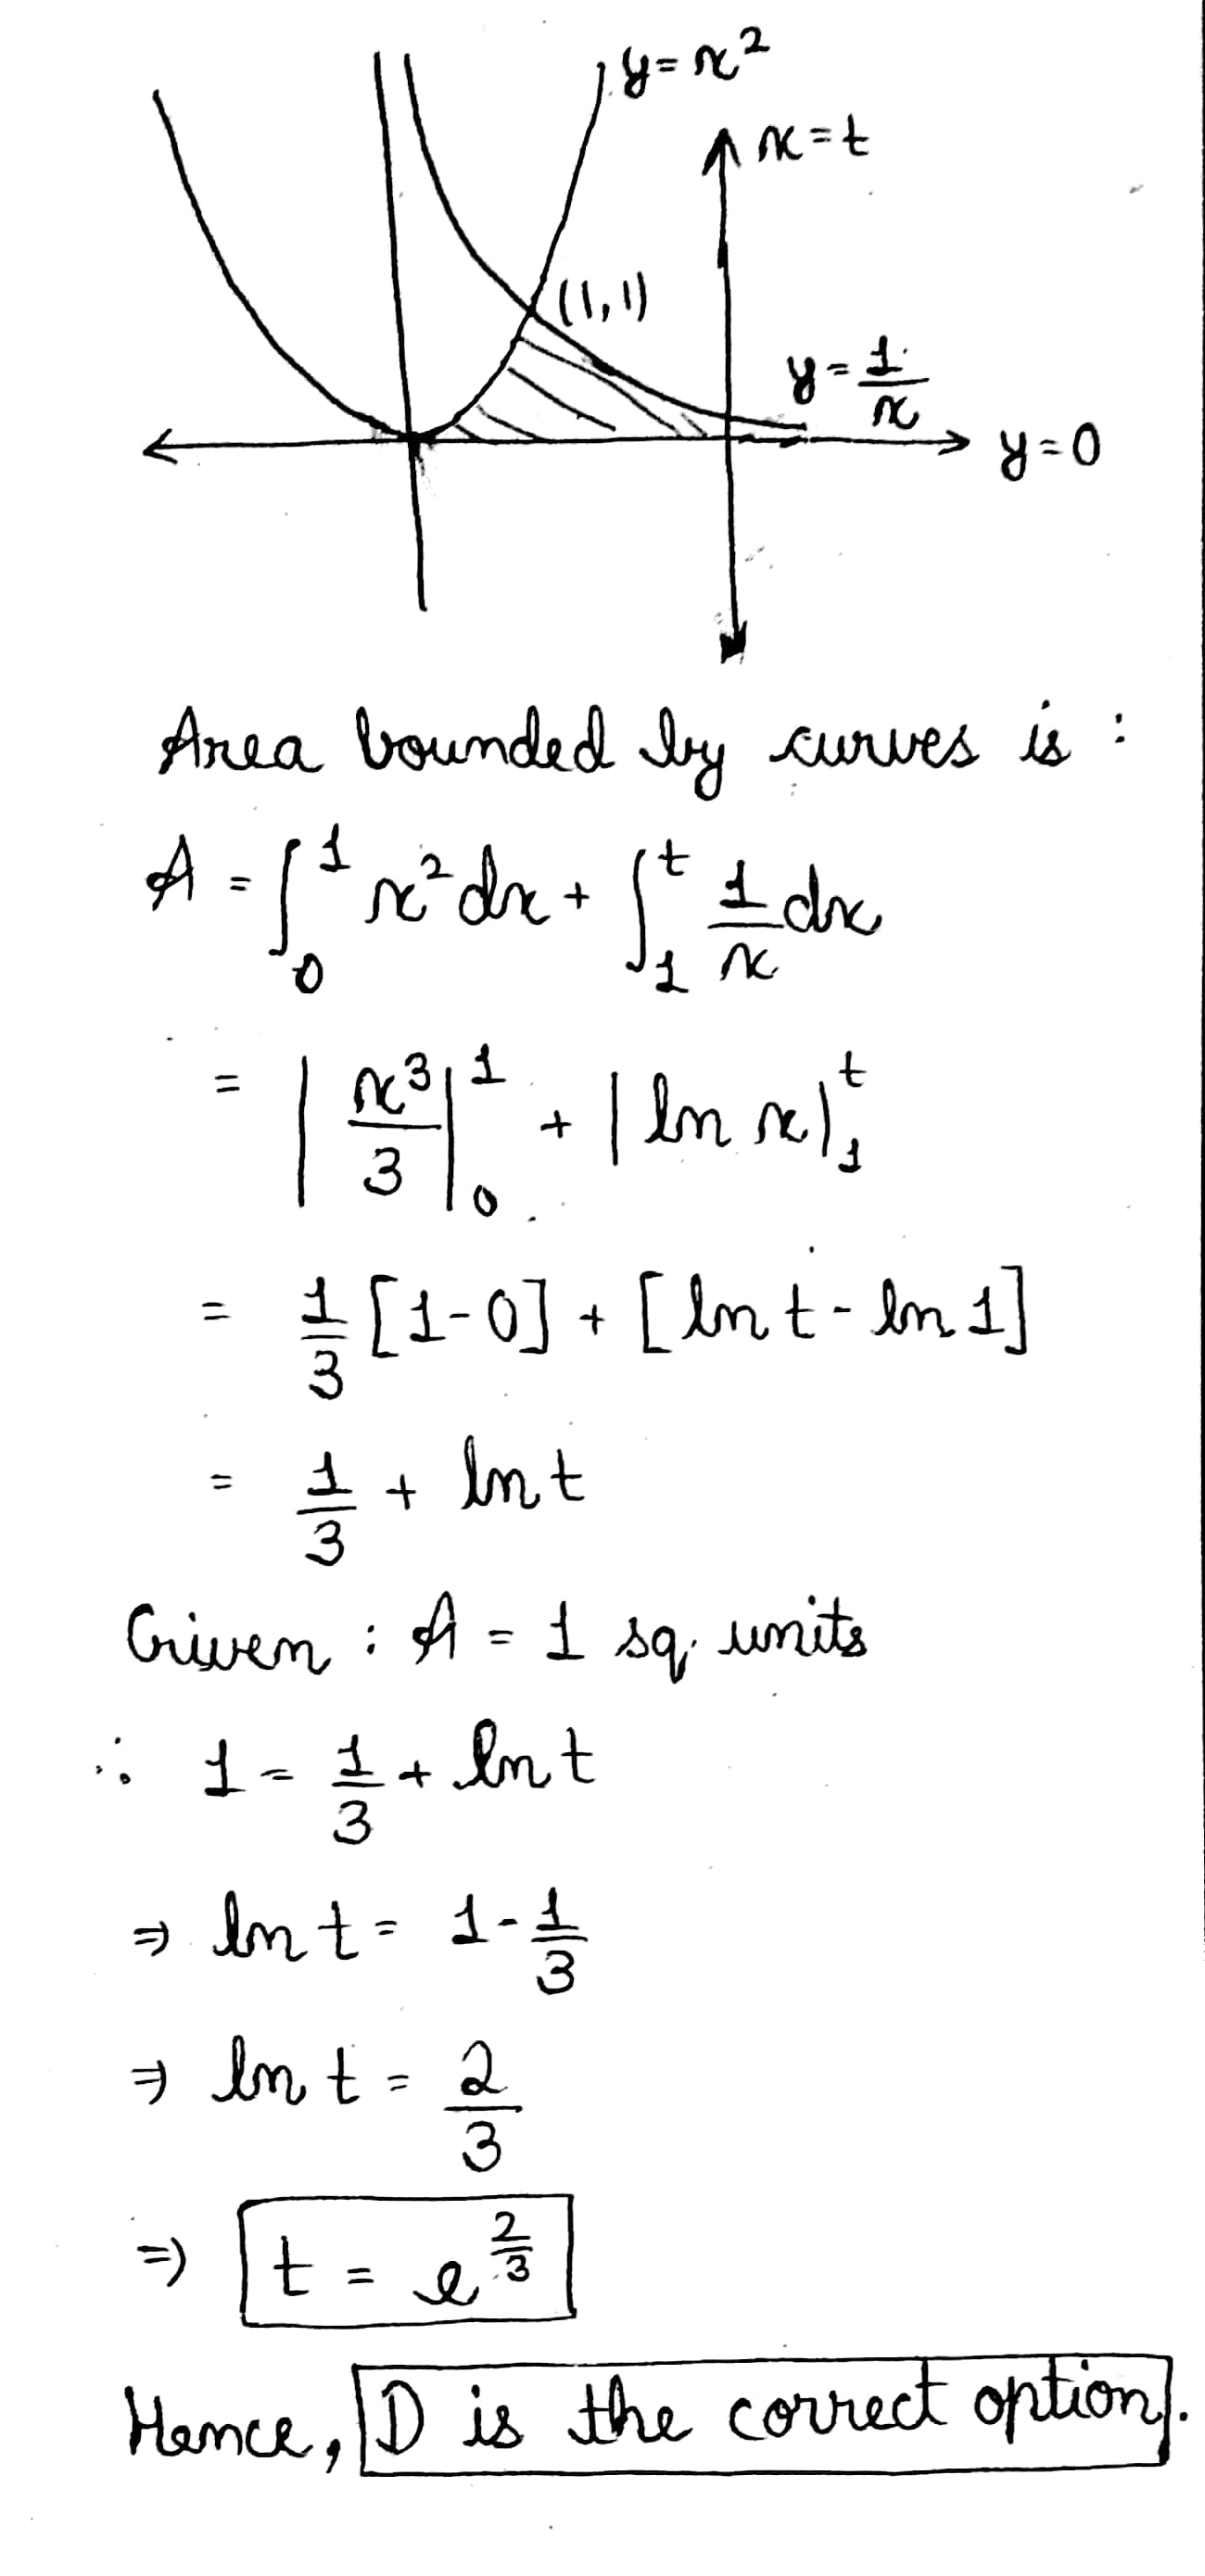 y = x²
x = t
(1, 1)
y = 1/x
y = 0
Area bounded by curves is :
A = ∫₀¹ x² dx + ∫₁ᵗ 1/x dx
= | x³/3 |₀¹ + | ln x |₁ᵗ
= 1/3 [1 - 0] + [ln t - ln 1]
= 1/3 + ln t
Given : A = 1 sq. units
∴ 1 = 1/3 + ln t
⇒ ln t = 1 - 1/3
⇒ ln t = 2/3
⇒ t = e^(2/3)
Hence, D is the correct option.